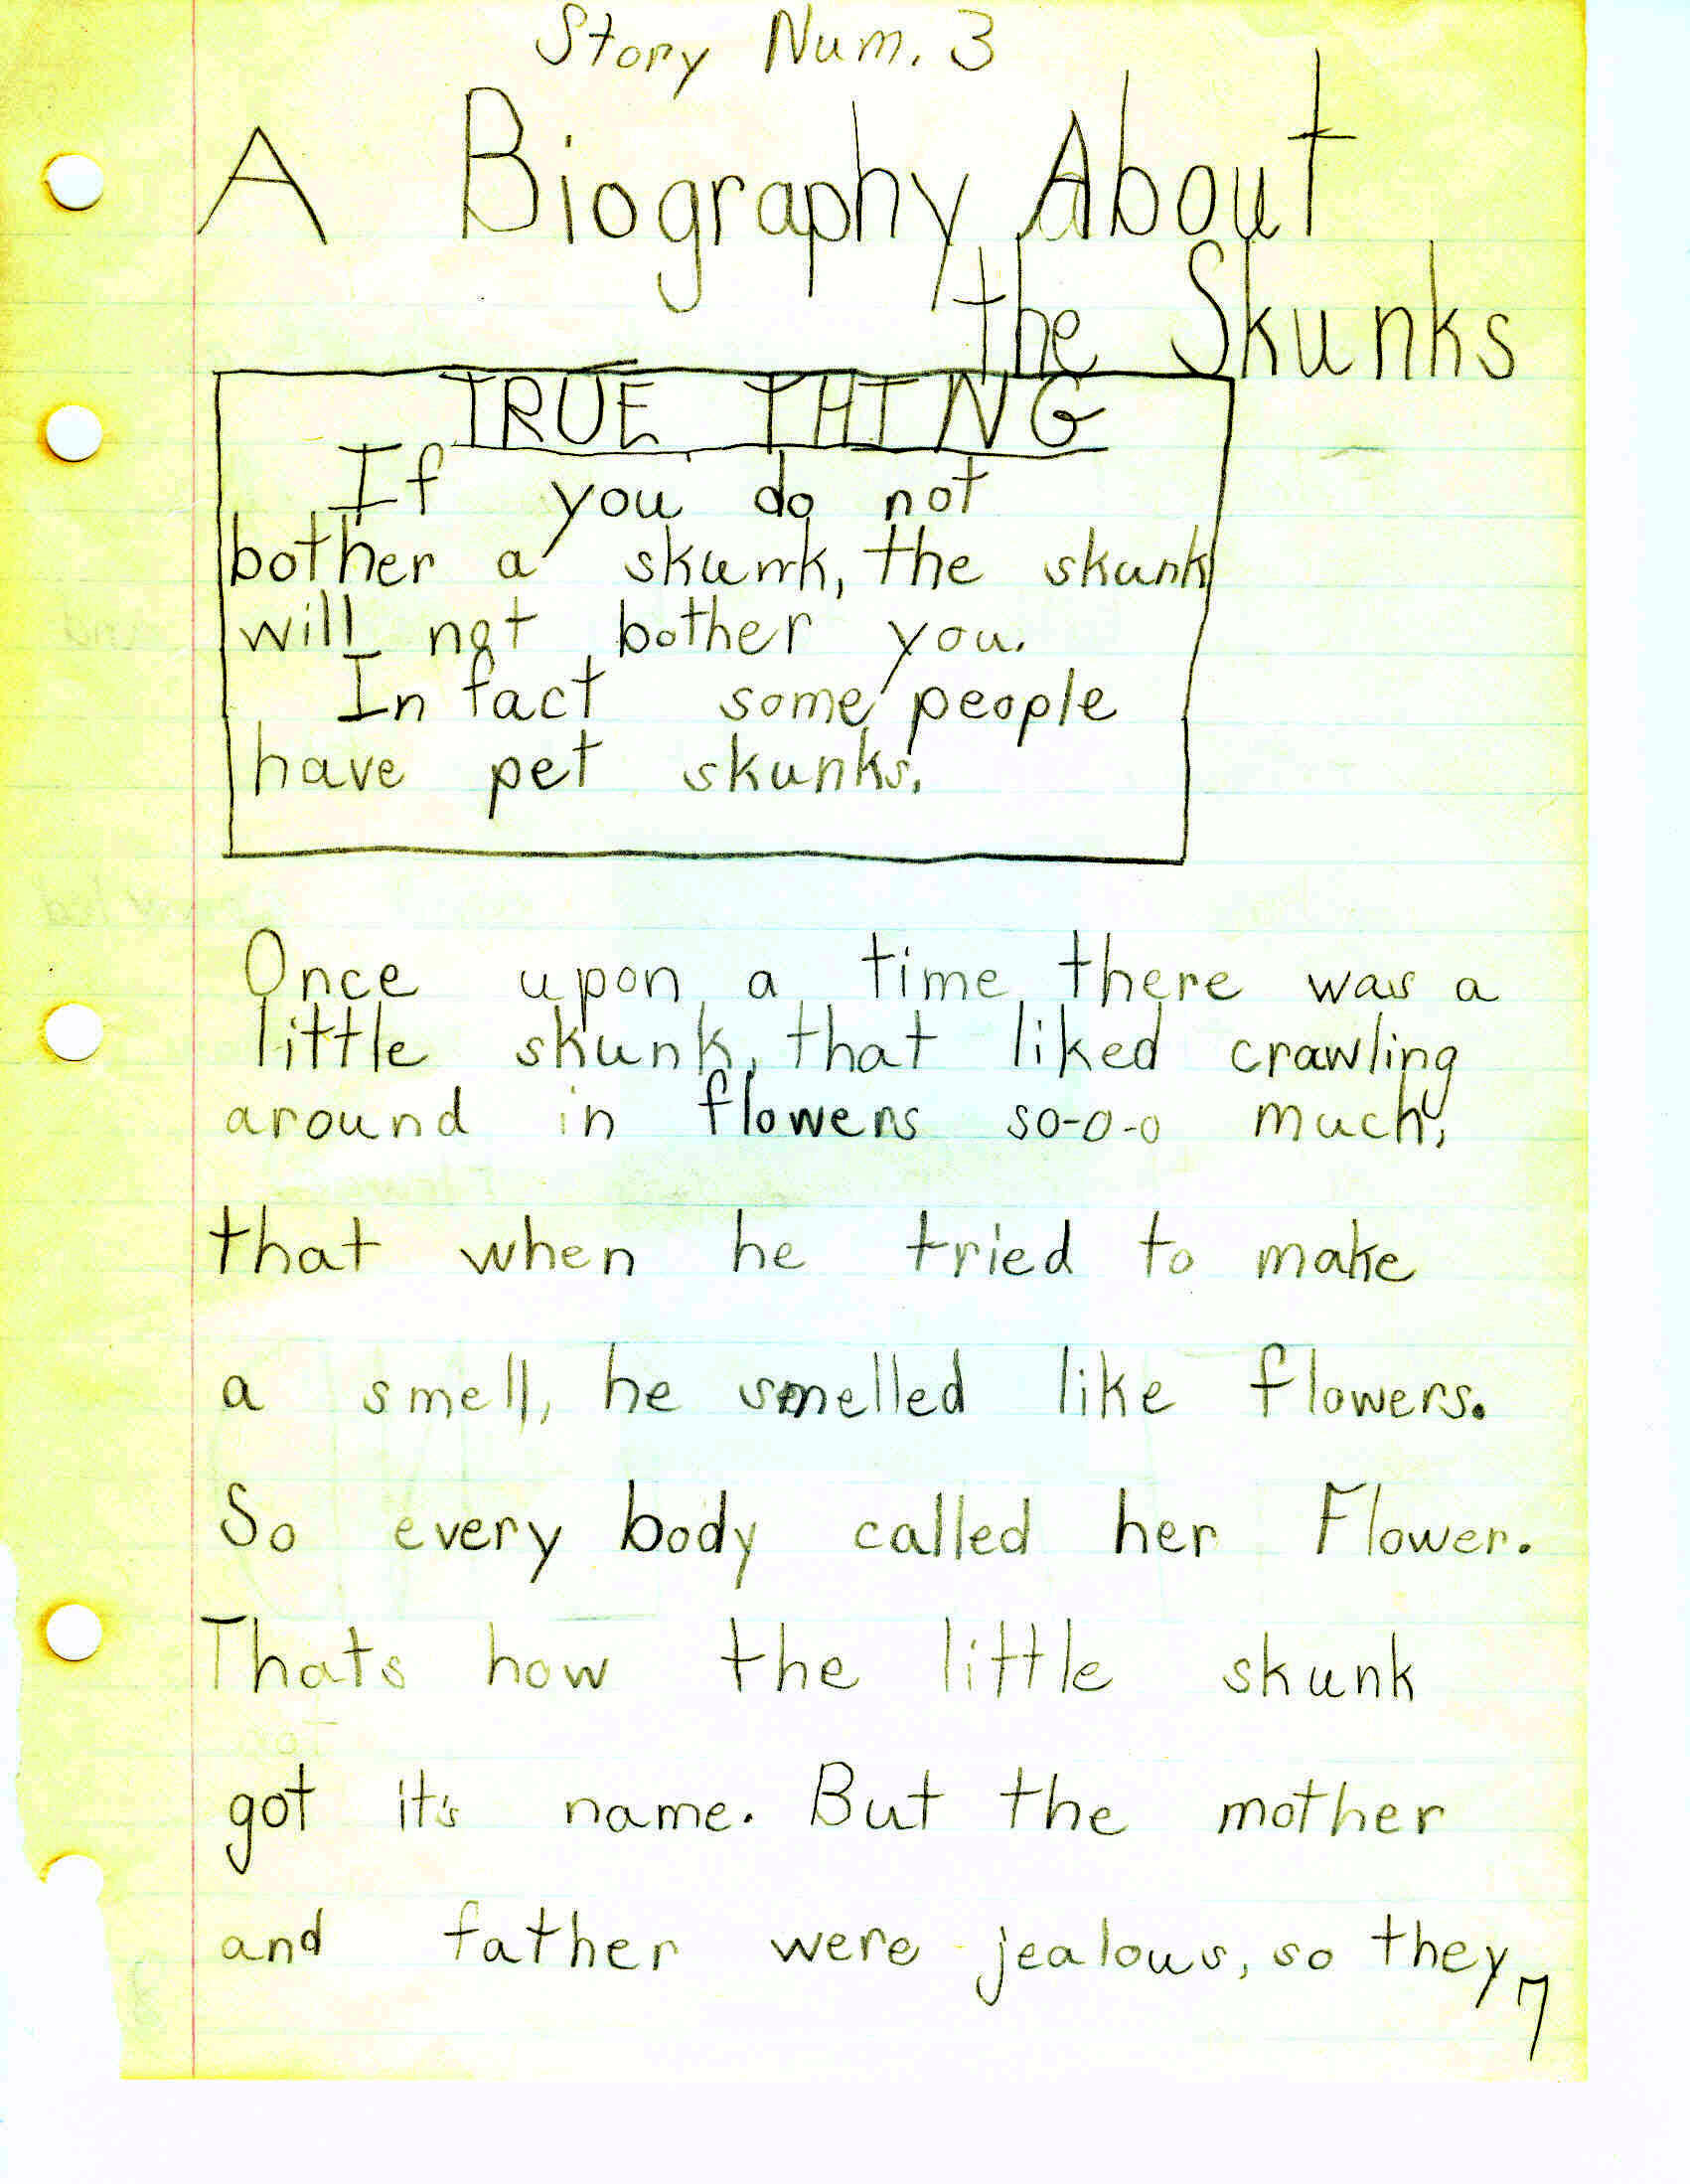 Story Num. 3
A Biography About
the Skunks
TRUE THING
If you do not
bother a skunk, the skunk
will not bother you.
In fact some people
have pet skunks.
Once upon a time there was a
little skunk, that liked crawling
around in flowers so-o-o much,
that when he tried to make
a smell, he smelled like flowers.
So every body called her Flower.
Thats how the little skunk
got it's name. But the mother
and father were jealous, so they
7